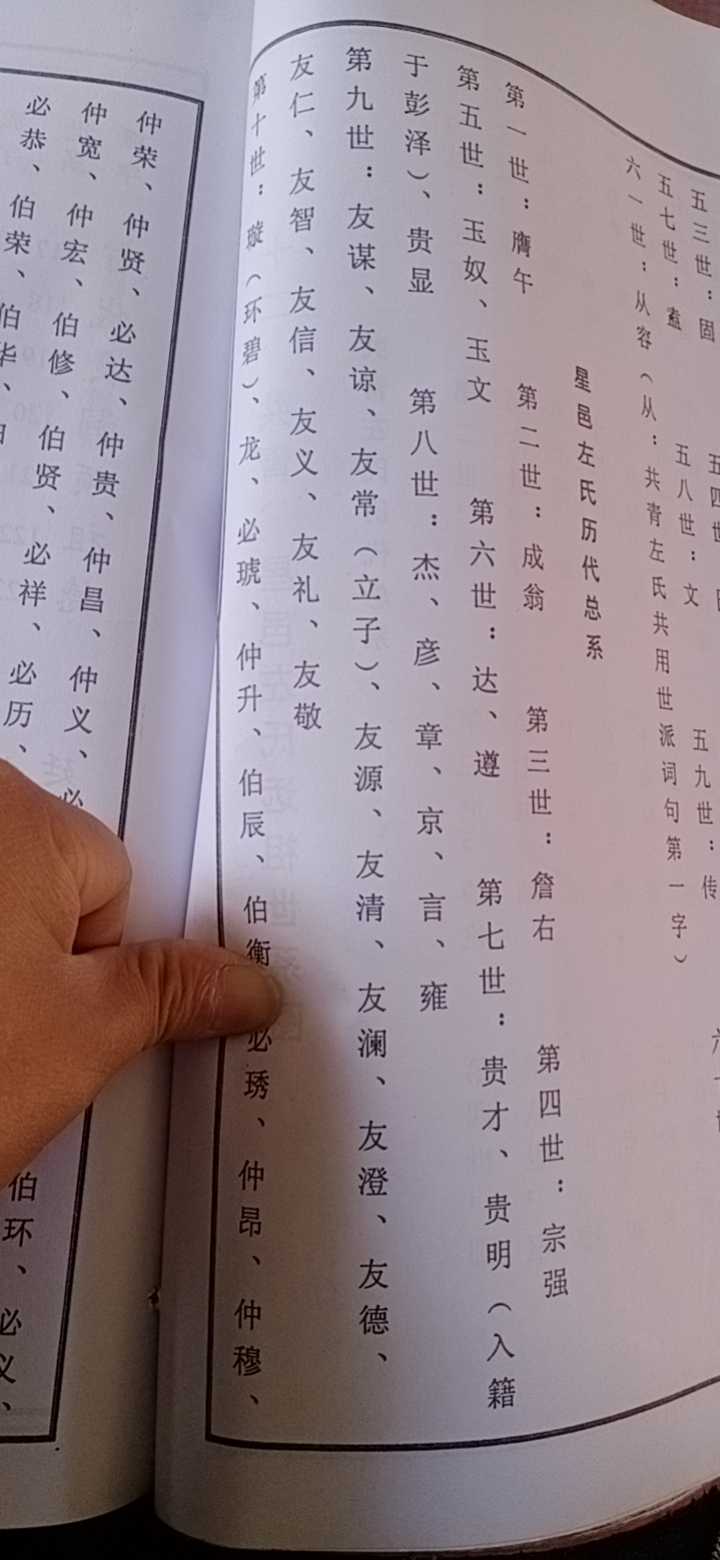 五三世：固 五四世
五七世：䀢 五八世：文 五九世：传
六一世：从容（从：共青左氏共用世派词句第一字）
星邑左氏历代总系
第一世：膺午 第二世：成翁 第三世：詹右 第四世：宗强
第五世：玉奴、玉文 第六世：达、遵 第七世：贵才、贵明（入籍
于彭泽）、贵显 第八世：杰、彦、章、京、言、雍
第九世：友谋、友谅、友常（立子）、友源、友清、友澜、友澄、友德、
友仁、友智、友信、友义、友礼、友敬
第十世：璇（环碧）、龙、必琥、仲升、伯辰、伯衡 必琇、仲昂、仲穆、
仲荣、仲贤、必达、仲贵、仲昌、仲义、必
仲宽、仲宏、伯修、伯贤、必祥、必历、
必恭、伯荣、伯华、 伯环、必义、